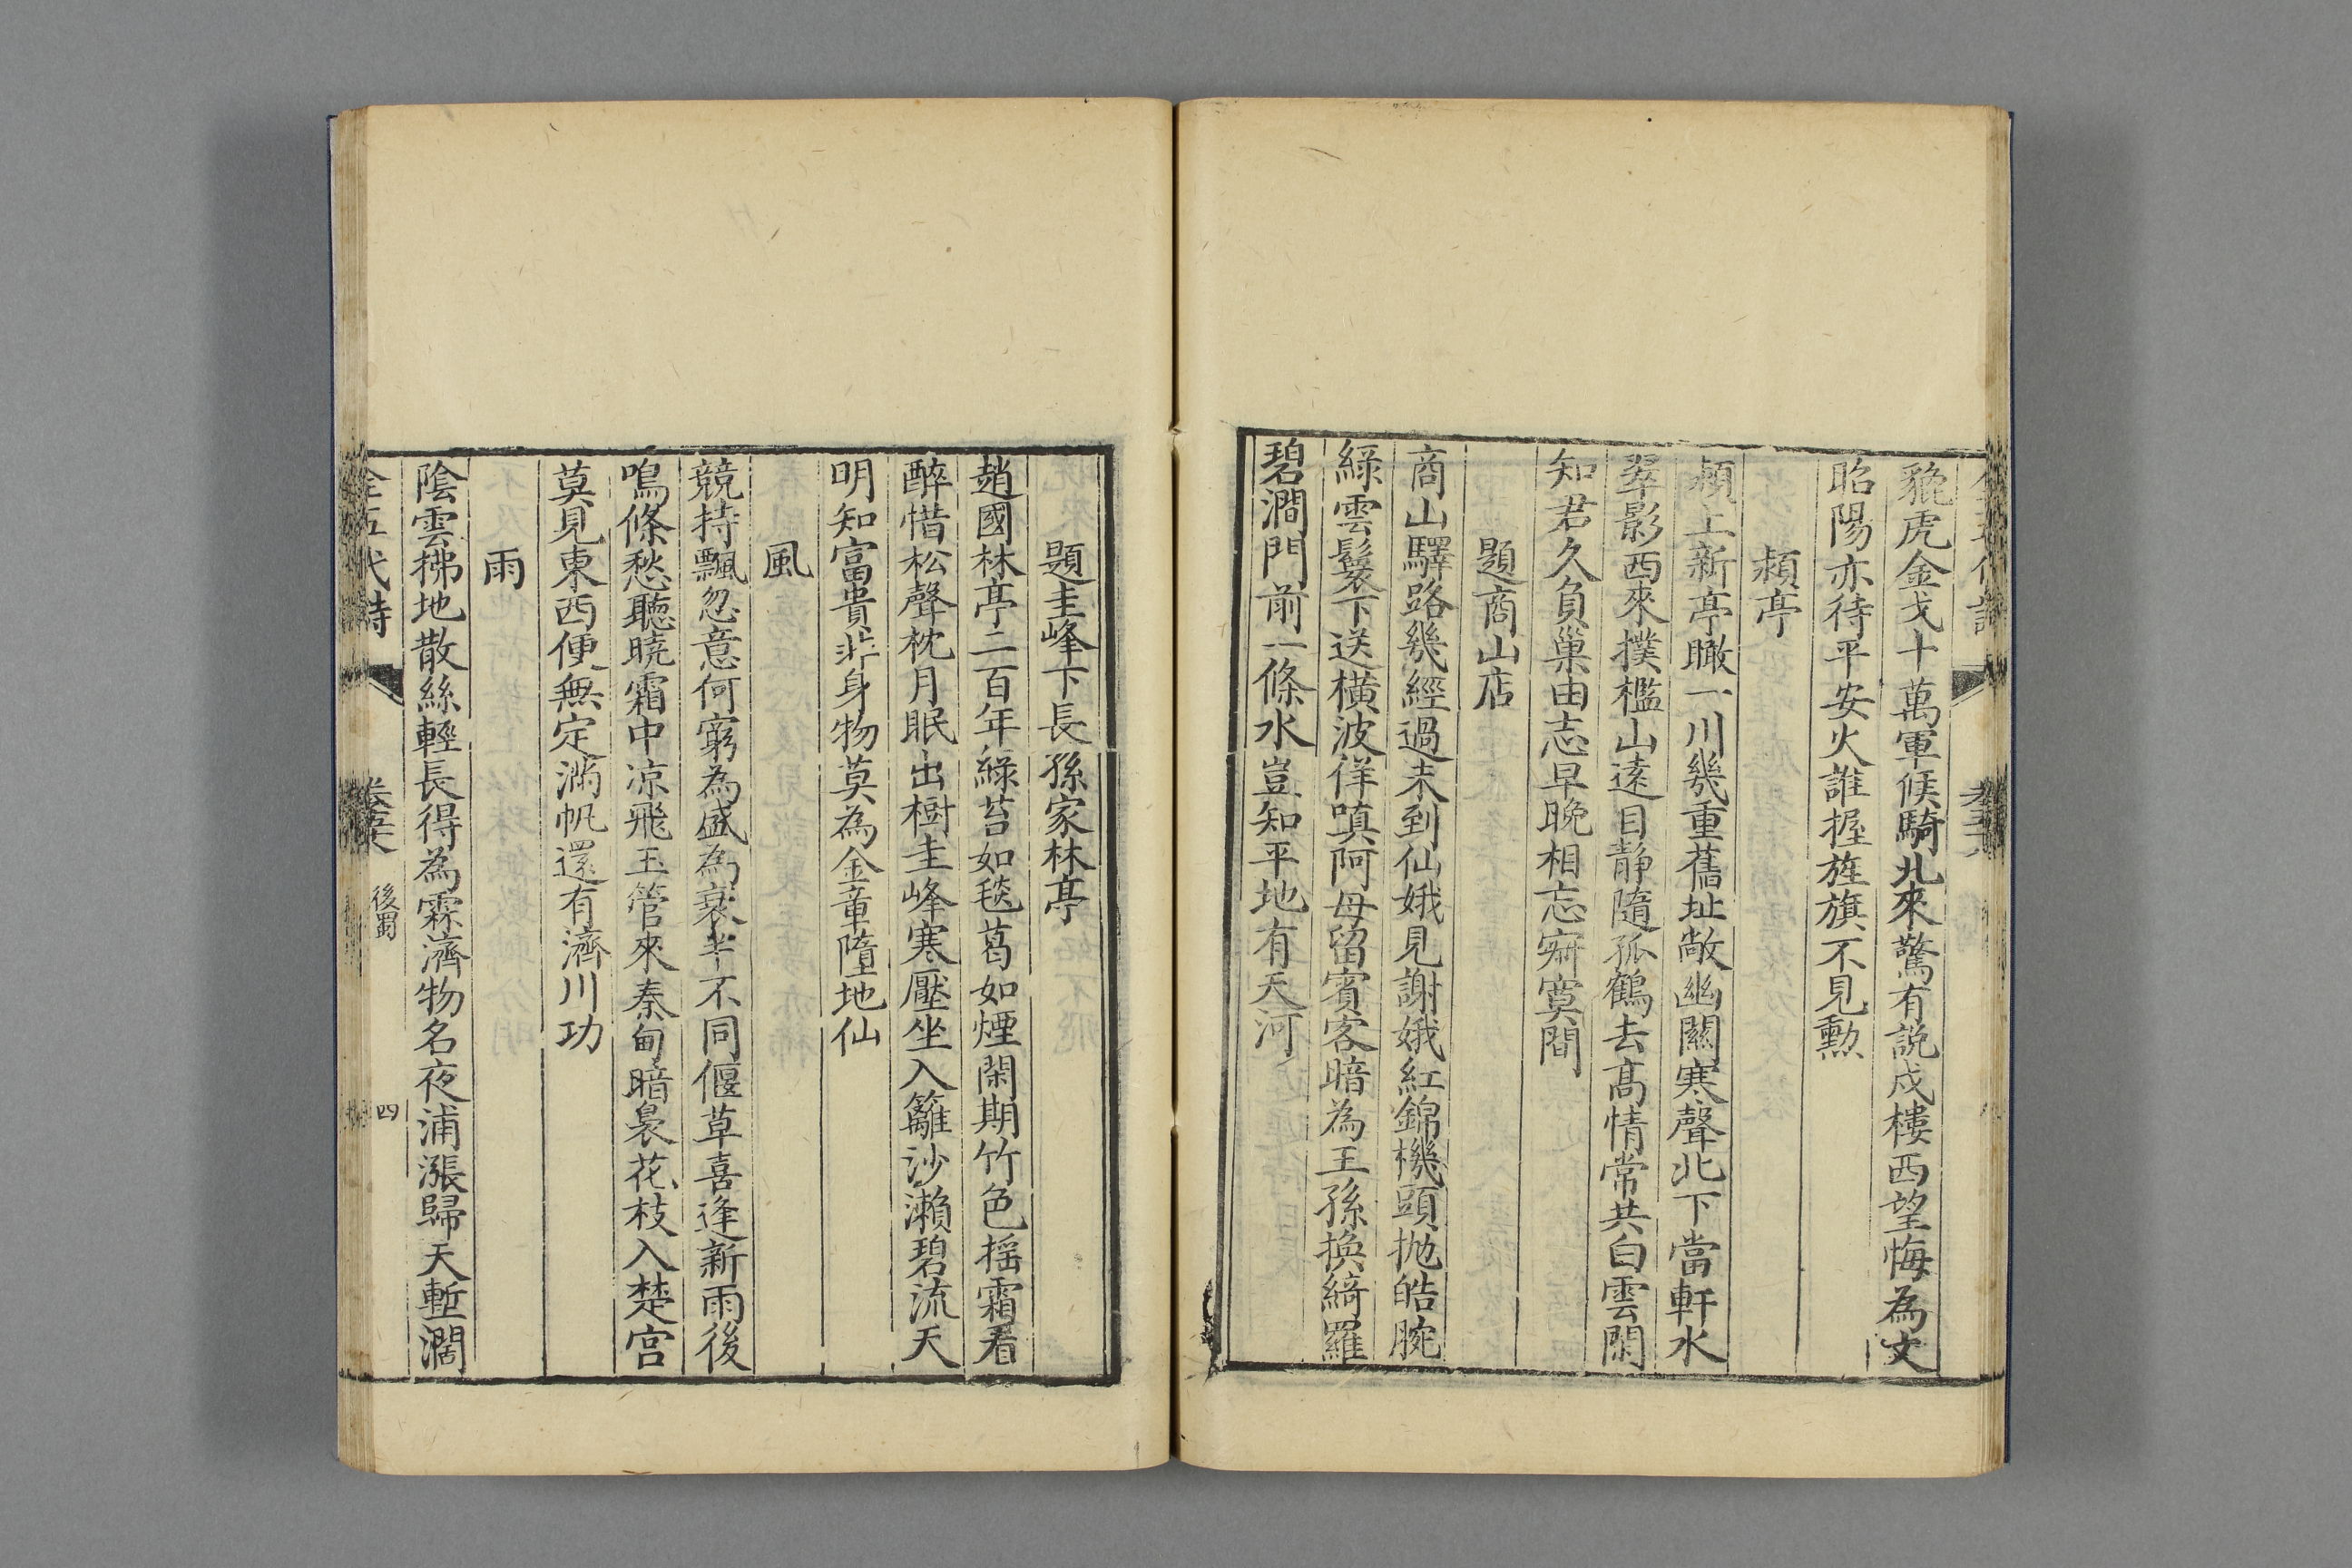 貔虎金戈十萬軍候騎北來驚有説戍樓西望悔為文
昭陽亦待平安火誰握旌旗不見勲
潁亭
潁上新亭瞰一川幾重舊址敞幽關寒聲北下當軒水
翠影西來撲檻山遠目静隨孤鶴去高情常共白雲閑
知君久負巢由志早晩相忘寂寞間
題商山店
商山驛路幾經過未到仙娥見謝娥紅錦機頭抛皓腕
緑雲鬟下送横波佯嗔阿母留賓客暗為王孫換綺羅
碧澗門前一條水豈知平地有天河
題圭峰下長孫家林亭
趙國林亭二百年緑苔如毯葛如煙閑期竹色揺霜看
醉惜松聲枕月眠出樹圭峰寒壓坐入籬沙瀨碧流天
明知富貴非身物莫為金章隳地仙
風
競持飄忽意何窮為盛為衰半不同偃草喜逢新雨後
鳴條愁聽曉霜中凉飛玉管來秦甸暗裊花枝入楚宫
莫見東西便無定滿帆還有濟川功
雨
陰雲拂地散絲輕長得為霖濟物名夜浦漲歸天塹濶
全五代詩 後蜀 四